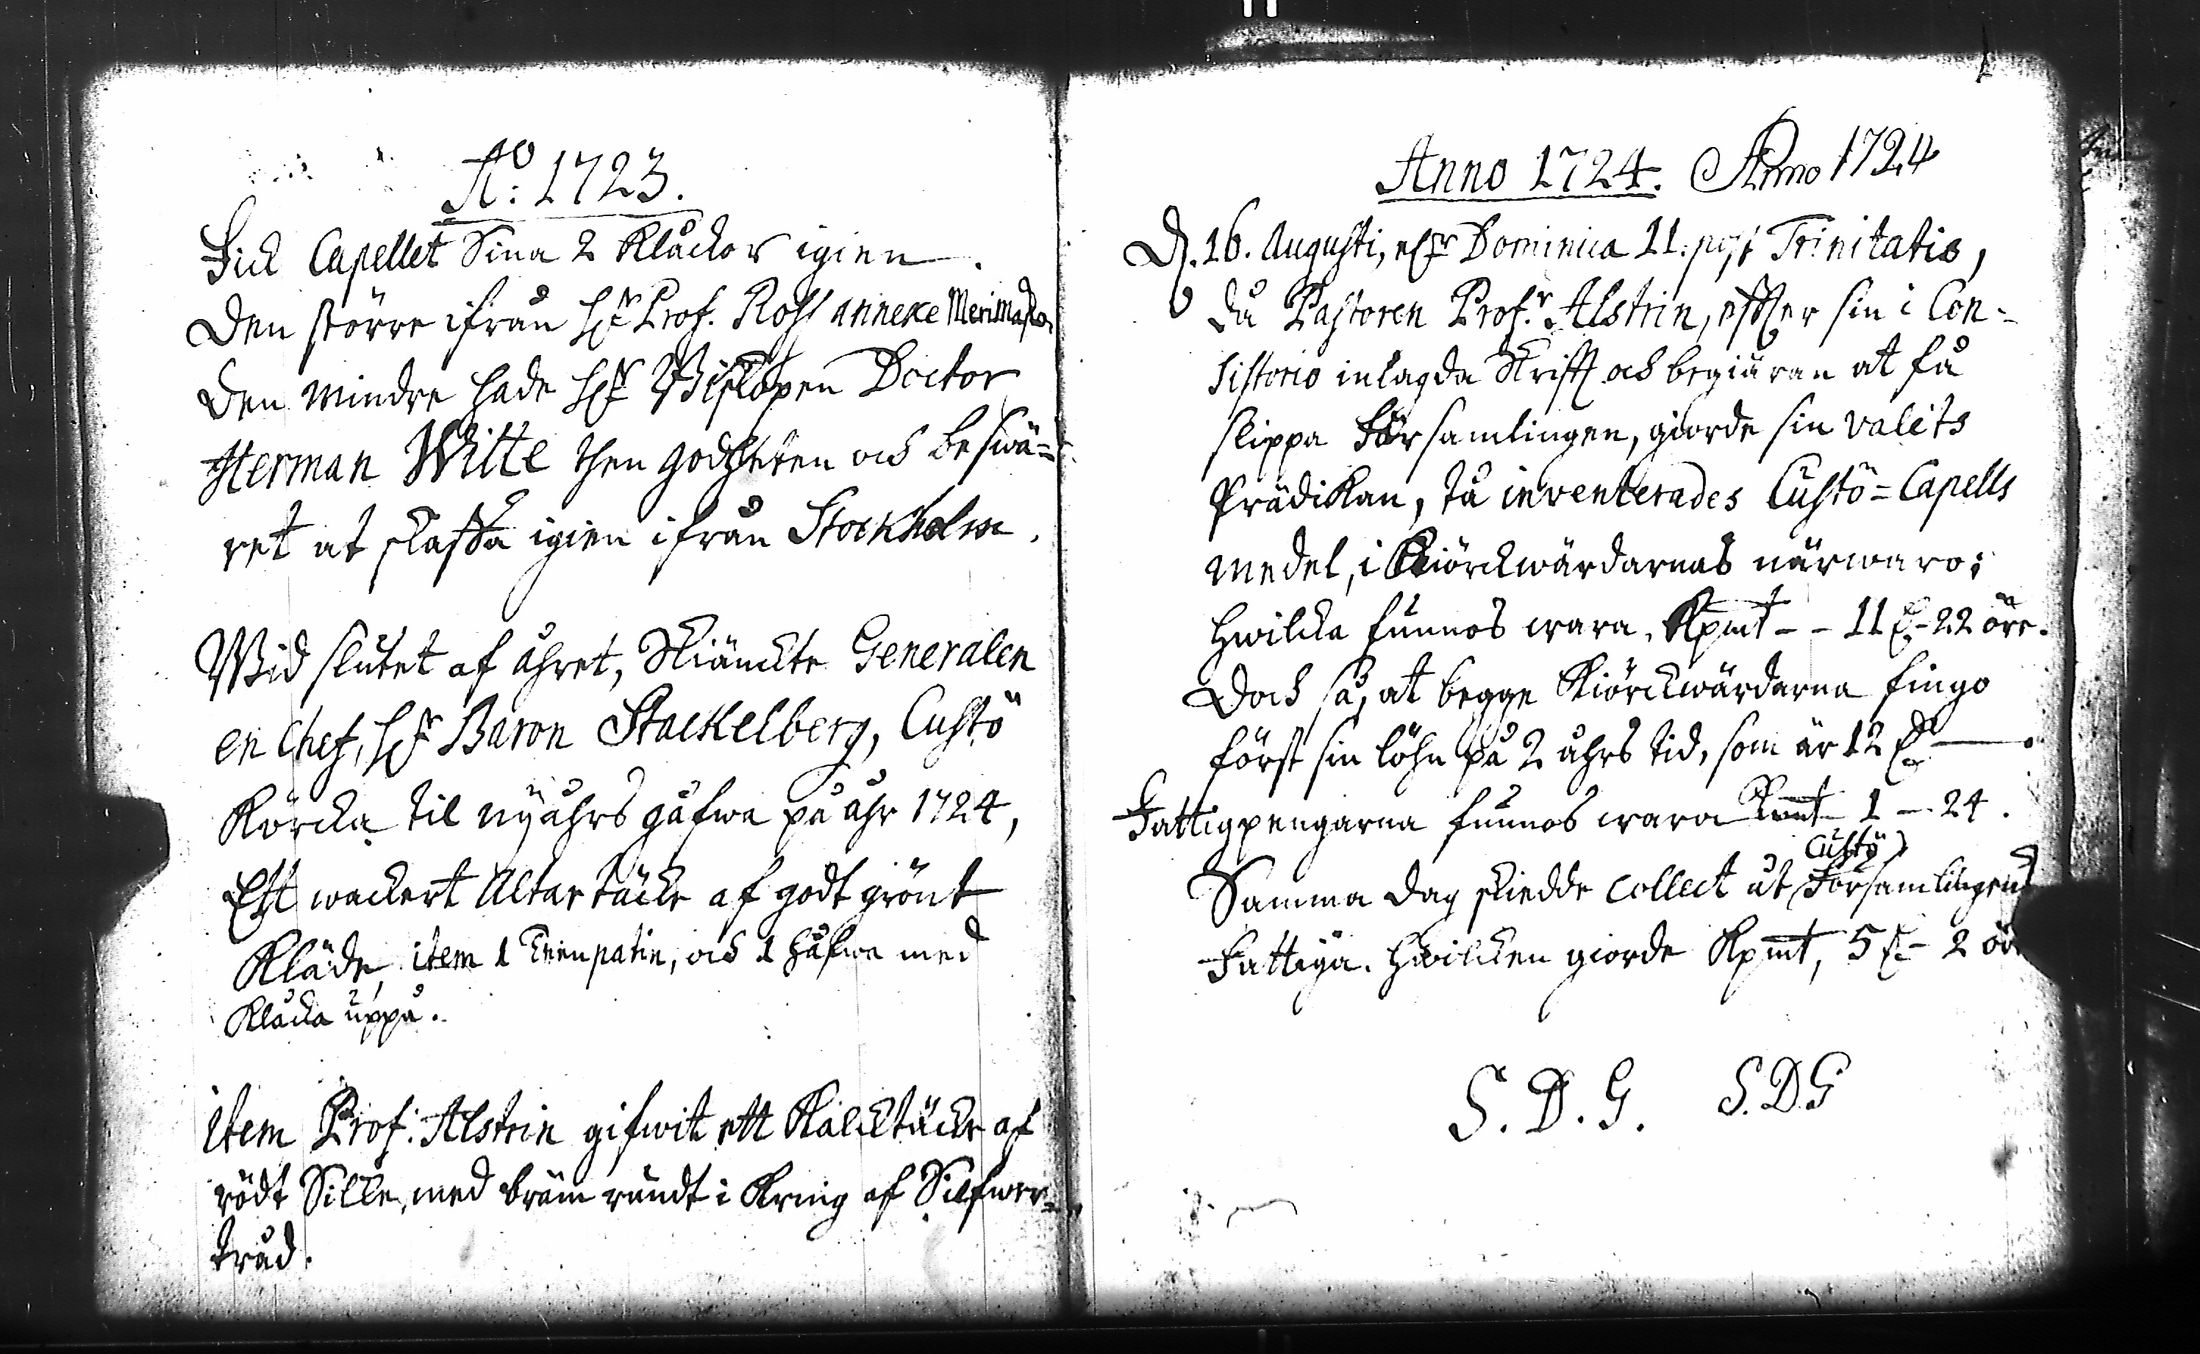 Aº: 1723.
Fick Capellet Sina 2 Kläckor igien.
Den större ifrån Hr Prof.
Den mindre hade Hr Biskopen Doctor
Herman Witte then godheten och beswä=
ret at skaffa igien ifrån Stockholm.
Wid slutet af åhret, Skiänckte Generalen
en Chef, Hr Baron Stackelberg, Custö
Körcka til nyåhrs gåfwa på åhr 1724,
Ett wackert Altartäcke af godt grönt
Kläde, item 1 och 1 håfwe med
Klåcka uppå.
item Prof. Alstrin gifwit ett Kalcktäcke af
rödt Silke, med bräm rundt i Kring af Silfwer=
tråd.
Anno 1724. Anno 1724
D. 16. Augusti, Dominica 11. post Trinitatis,
då Pastoren Prof.r Alstrin, effter sin i Con-
sistorio inlagda Skrifft och begiäran at få
slippa Församlingen, giorde sin valets
Prädikan, tå inventerades Custö=Capells
medel, i Kiörckwärdarnas närwaro;
hwilcka funnos wara, Kpmt - - 11 - 22 öre.
Doch så, at begge Kiörckwärdarna fingo
först sin löhn på 2 åhrs tid, som är 12
Fattigpengarna funnos wara Kmt 1 - 24.
Custö
Samma dag skiedde collect åt Församlingens
Fattiga. Hwilcken giorde Kpmt, 5 - 2 ör
S. D. G. S.D.G